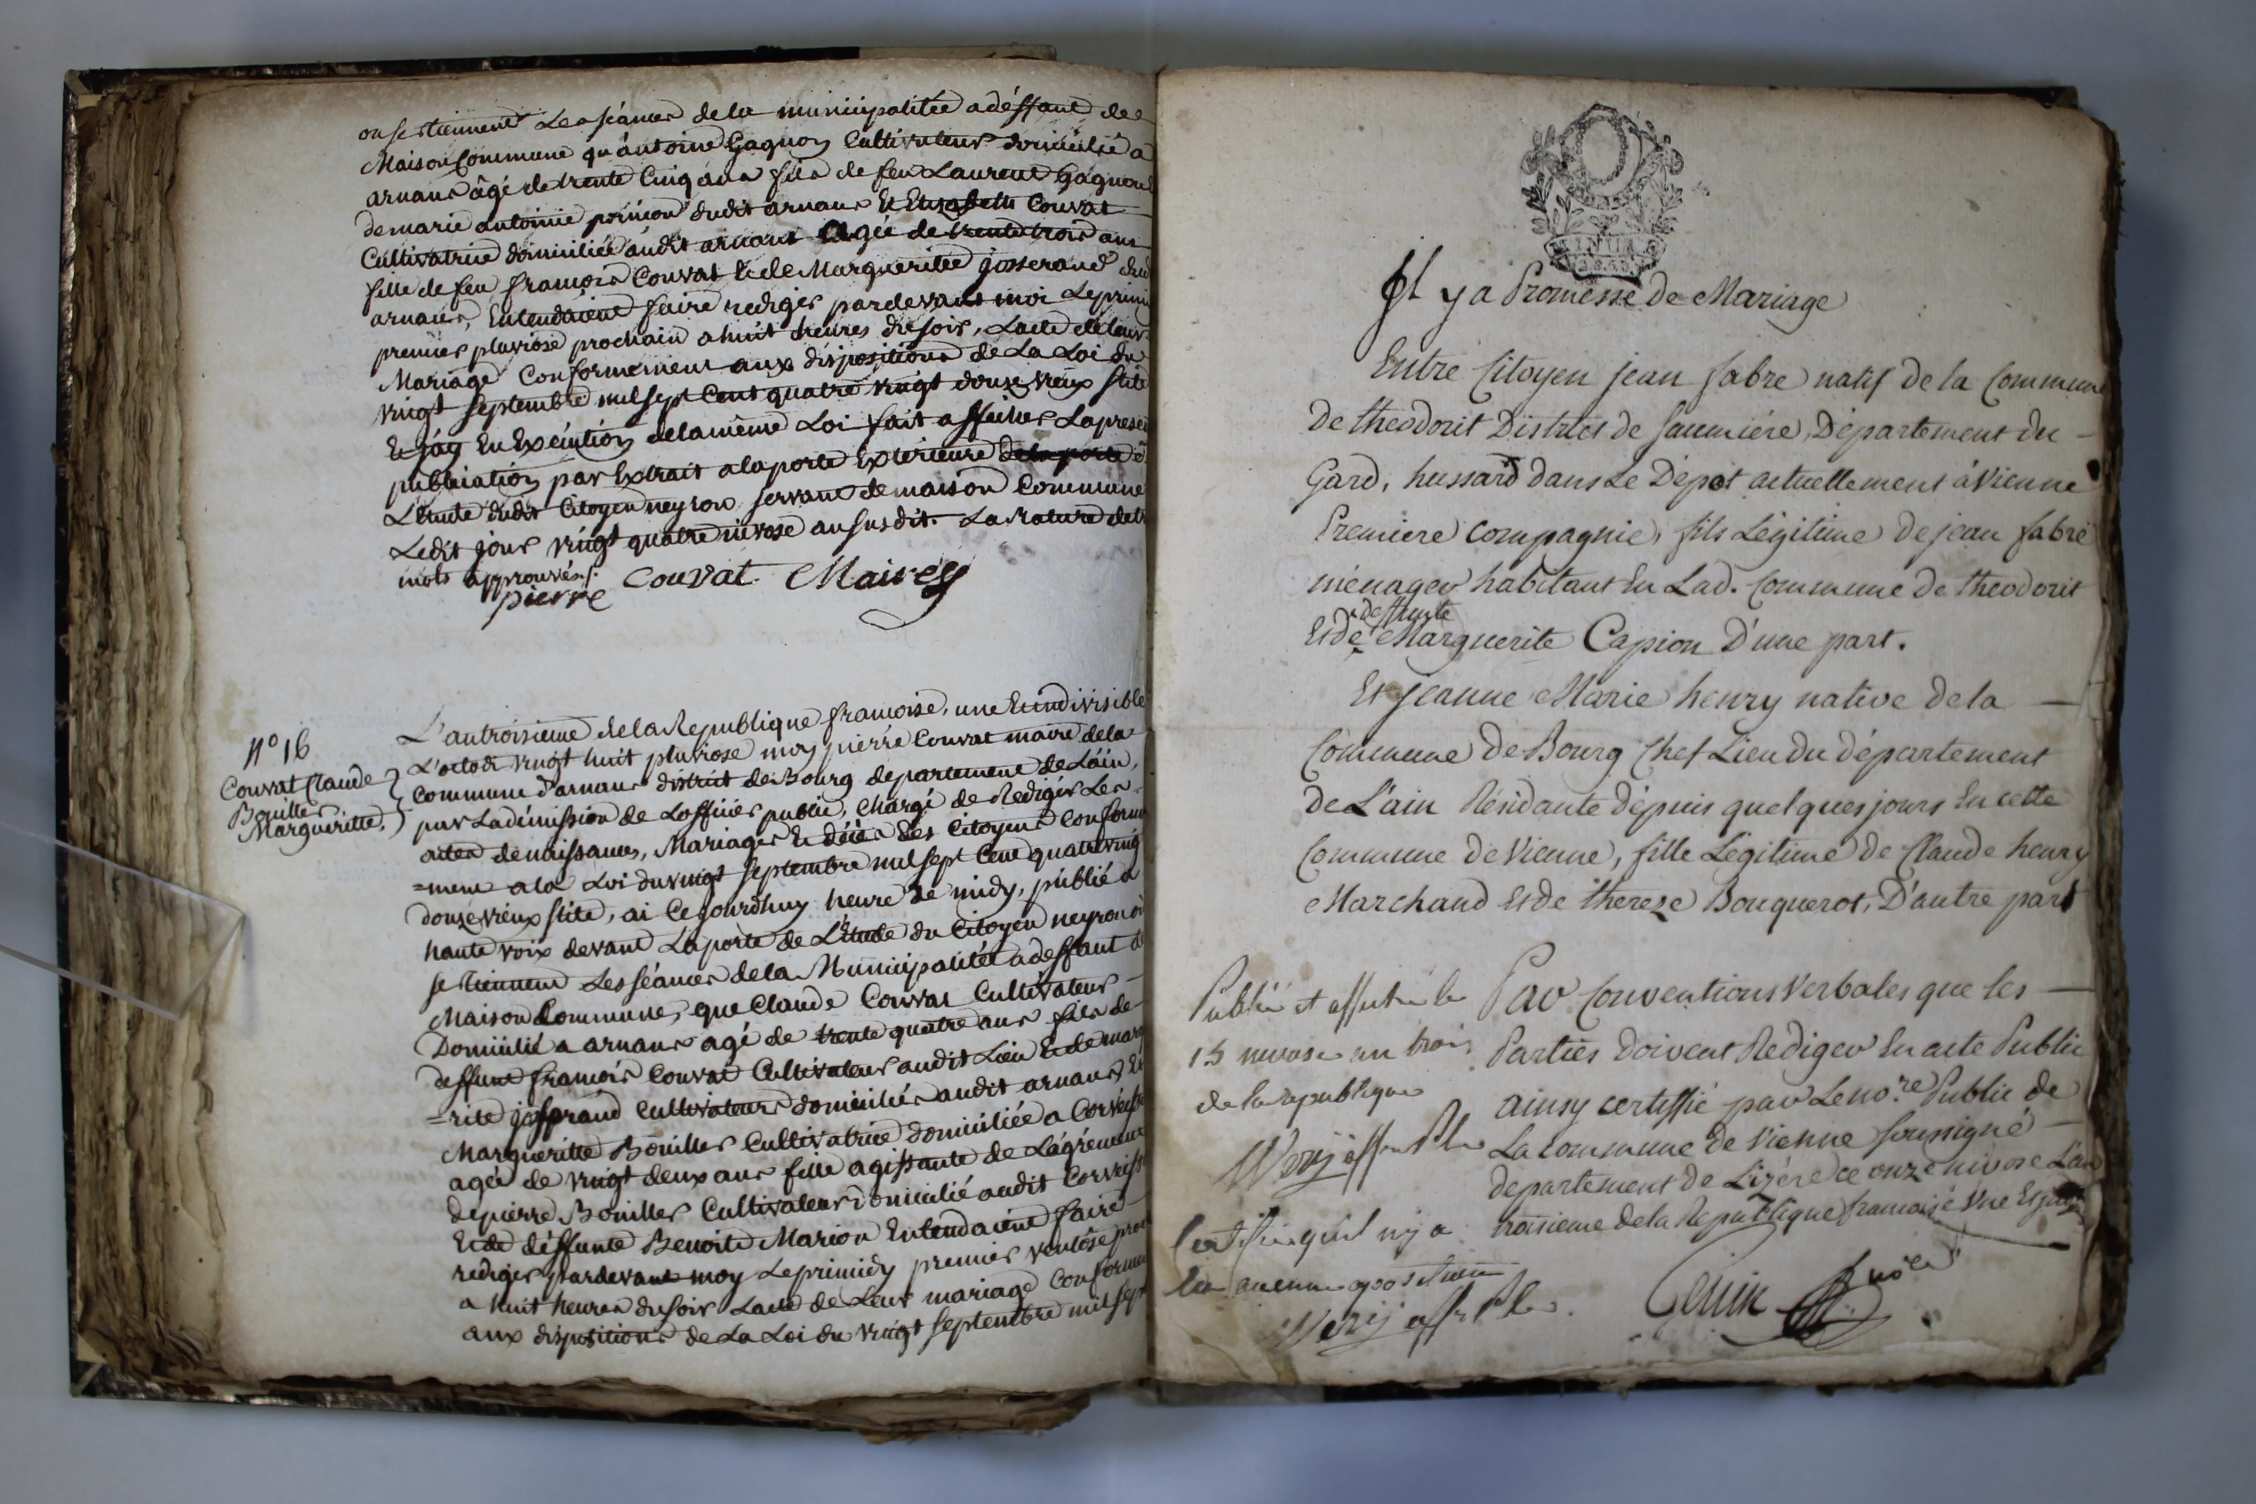 ou se tiennent Les séances de la municipalitée a déffaut de
Maison Commune qu'antoine Gagnon Cultivateur domicilié a
arnans âgé de trente Cinq ans fils de feu Laurent Gagnon
de marie antoinie dudit arnans Et Elisabeth Couvat
Cultivatrice domiciliée audit arnans agée de trente trois ans
fille de feu françois Couvat Et de Margueritte josserand dud
arnans, Entendaient faire rediger pardevant moi Le primi
premier pluviose prochain a huit heures du soir, Lacte de leur
Mariage Conformement aux dispositions de La Loi du
vingt septembre mil sept Cent quatre vingt douze vieux stile
Et j'ay En Execution de la même Loi fait afficher La prese
publication par Extrait a la porte Exterieure de la porte d
L'Etude dudit Citoyen neyron servant de maison Commune
Ledit jour vingt quatre nivose an susdit. La rature de
mots approuvés./.
pierre Couvat Maire
N° 16
Couvat Claude
Bouiller
Margueritte.
L'an troisieme de la Republique françoise, une Et indivisible
L'octodi vingt huit pluviose moy pierre Couvat maire de la
Commune d'arnans district de Bourg departement de L'ain,
par La démission de Lofficier public, Chargé de Rediger Les
actes de naissances, Mariages Et décès des Citoyens Conforme
=ment a la Loi du vingt septembre mil sept Cent quatre vingt
douze vieux stile, ai Cejourdhuy heure de midy, publié a
haute voix devant La porte de L'Etude du Citoyen neyron ou
se tiennent Les séances de la Municipalité a deffaut d
Maison Commune, que Claude Couvat Cultivateur
Domicilié a arnans agé de trente quatre ans fils de
deffunt françois Couvat Cultivateur audit Lieu Et de marg
=rite josserand Cultivateurs domiciliés audit arnans, Et
Margueritte Bouiller Cultivatrice domiciliée a
agée de vingt deux ans fille agissante de L'agrément
de pierre Bouiller Cultivateur domicilié audit
Et de déffunte Benoite Marion Entendaient faire
rediger pardevant moy Le primidy premier ventôse pro
a huit heures du soir Lacte de Leur mariage Conforme
aux dispositions de La Loi du vingt septembre mil sept
Il y a Promesse de Mariage
Entre Citoyen jean fabre natif de la Commune
de theodorit District de Saumiére, Département du
Gard, hussard dans Le Dépot actuellement à Vienne
Premiere compagnie, fils Légitime de jean fabre
ménager habitant En Lad. Commune de theodorit
deffunte
Et de Marguerite Capion D'une part.
Et Jeanne Marie henry native de la
Commune de Bourg Chef Lieu du département
de L'ain Résidante dépuis quelques jours En cette
Commune de Vienne, fille Légitime de Claude henry
Marchand Et de therese Bouquerot, D'autre part
Par Conventions Verbales que les
Parties doivent Rediger En acte Public
ainsy certiffié par Le no.re Public de
La Commune de Vienne soussigné
departement de Lizére ce onze nivose L'an
troisieme de la Republique francaise Une Et
Publié et affiché le
13 nivose an trois
de la republique
qu'il n'y a
eu aucune opposition